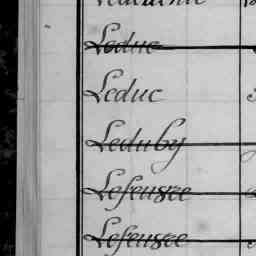 Leduc
Leduc
Leduby
Lefeusce
Lefeusce